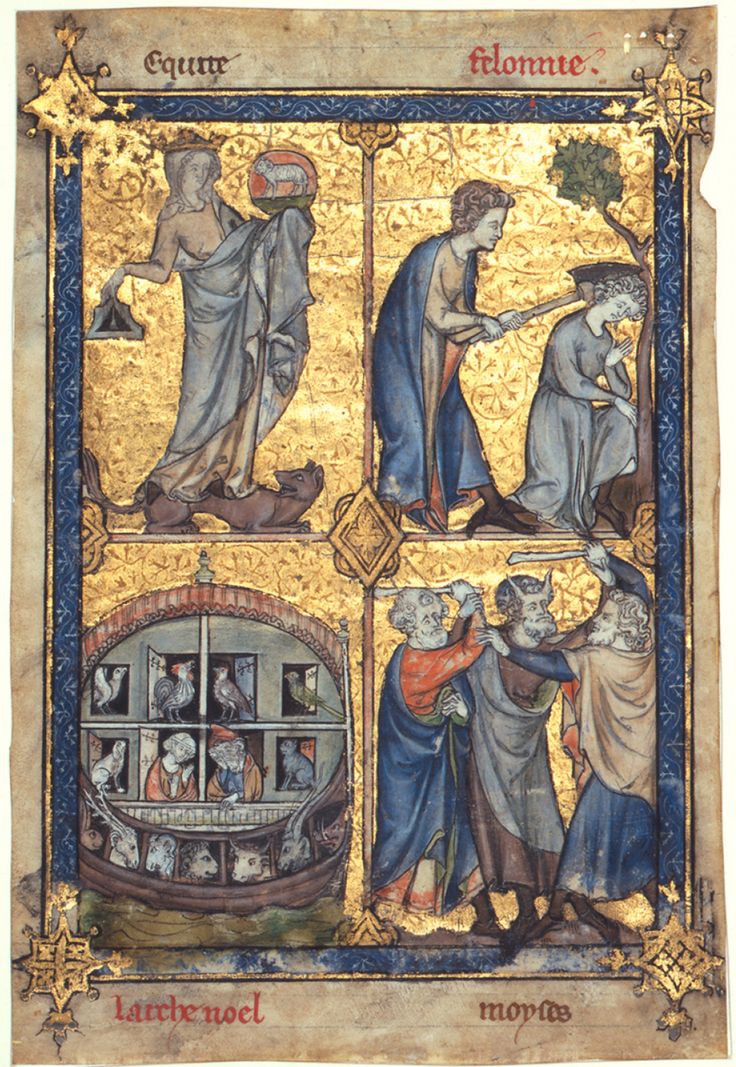 Equite
felonnie.
larche noel
moyses